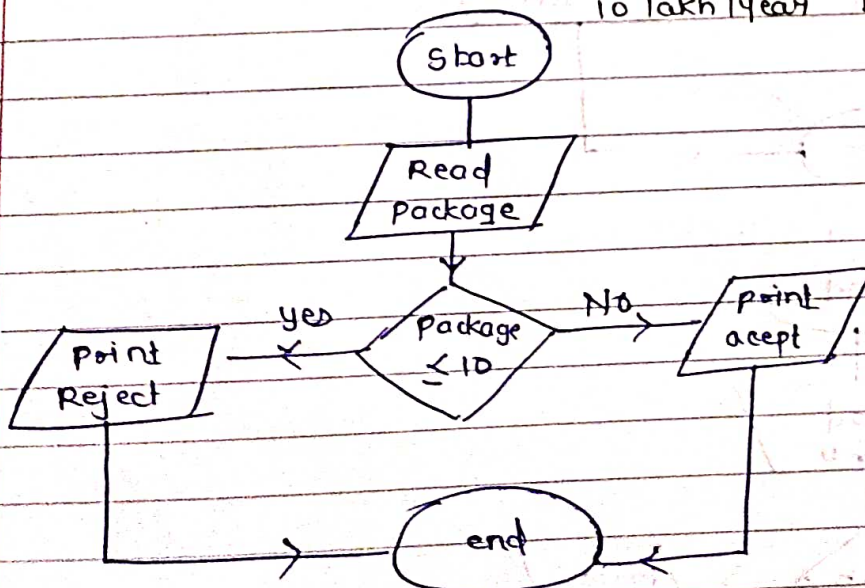 10 lakh / year
Start
Read
package
yes
package
≤ 10
No
print
Reject
print
acept
end